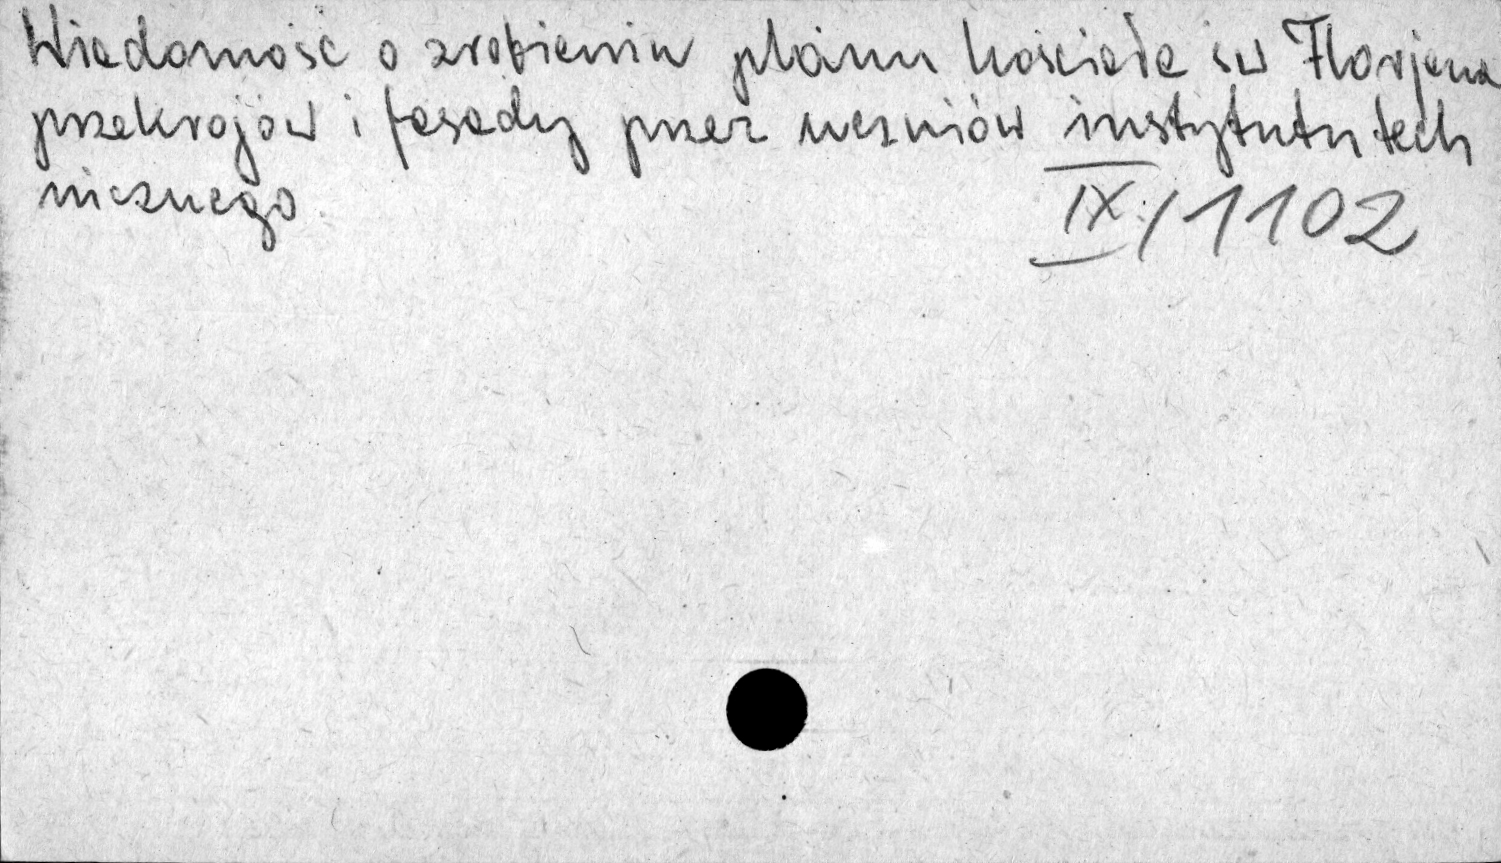 Wiadomość o zrobieniu planu kościoła św Florjana
przekrojów i fasady przez uczniów instytutu tech
nicznego
IX/1102